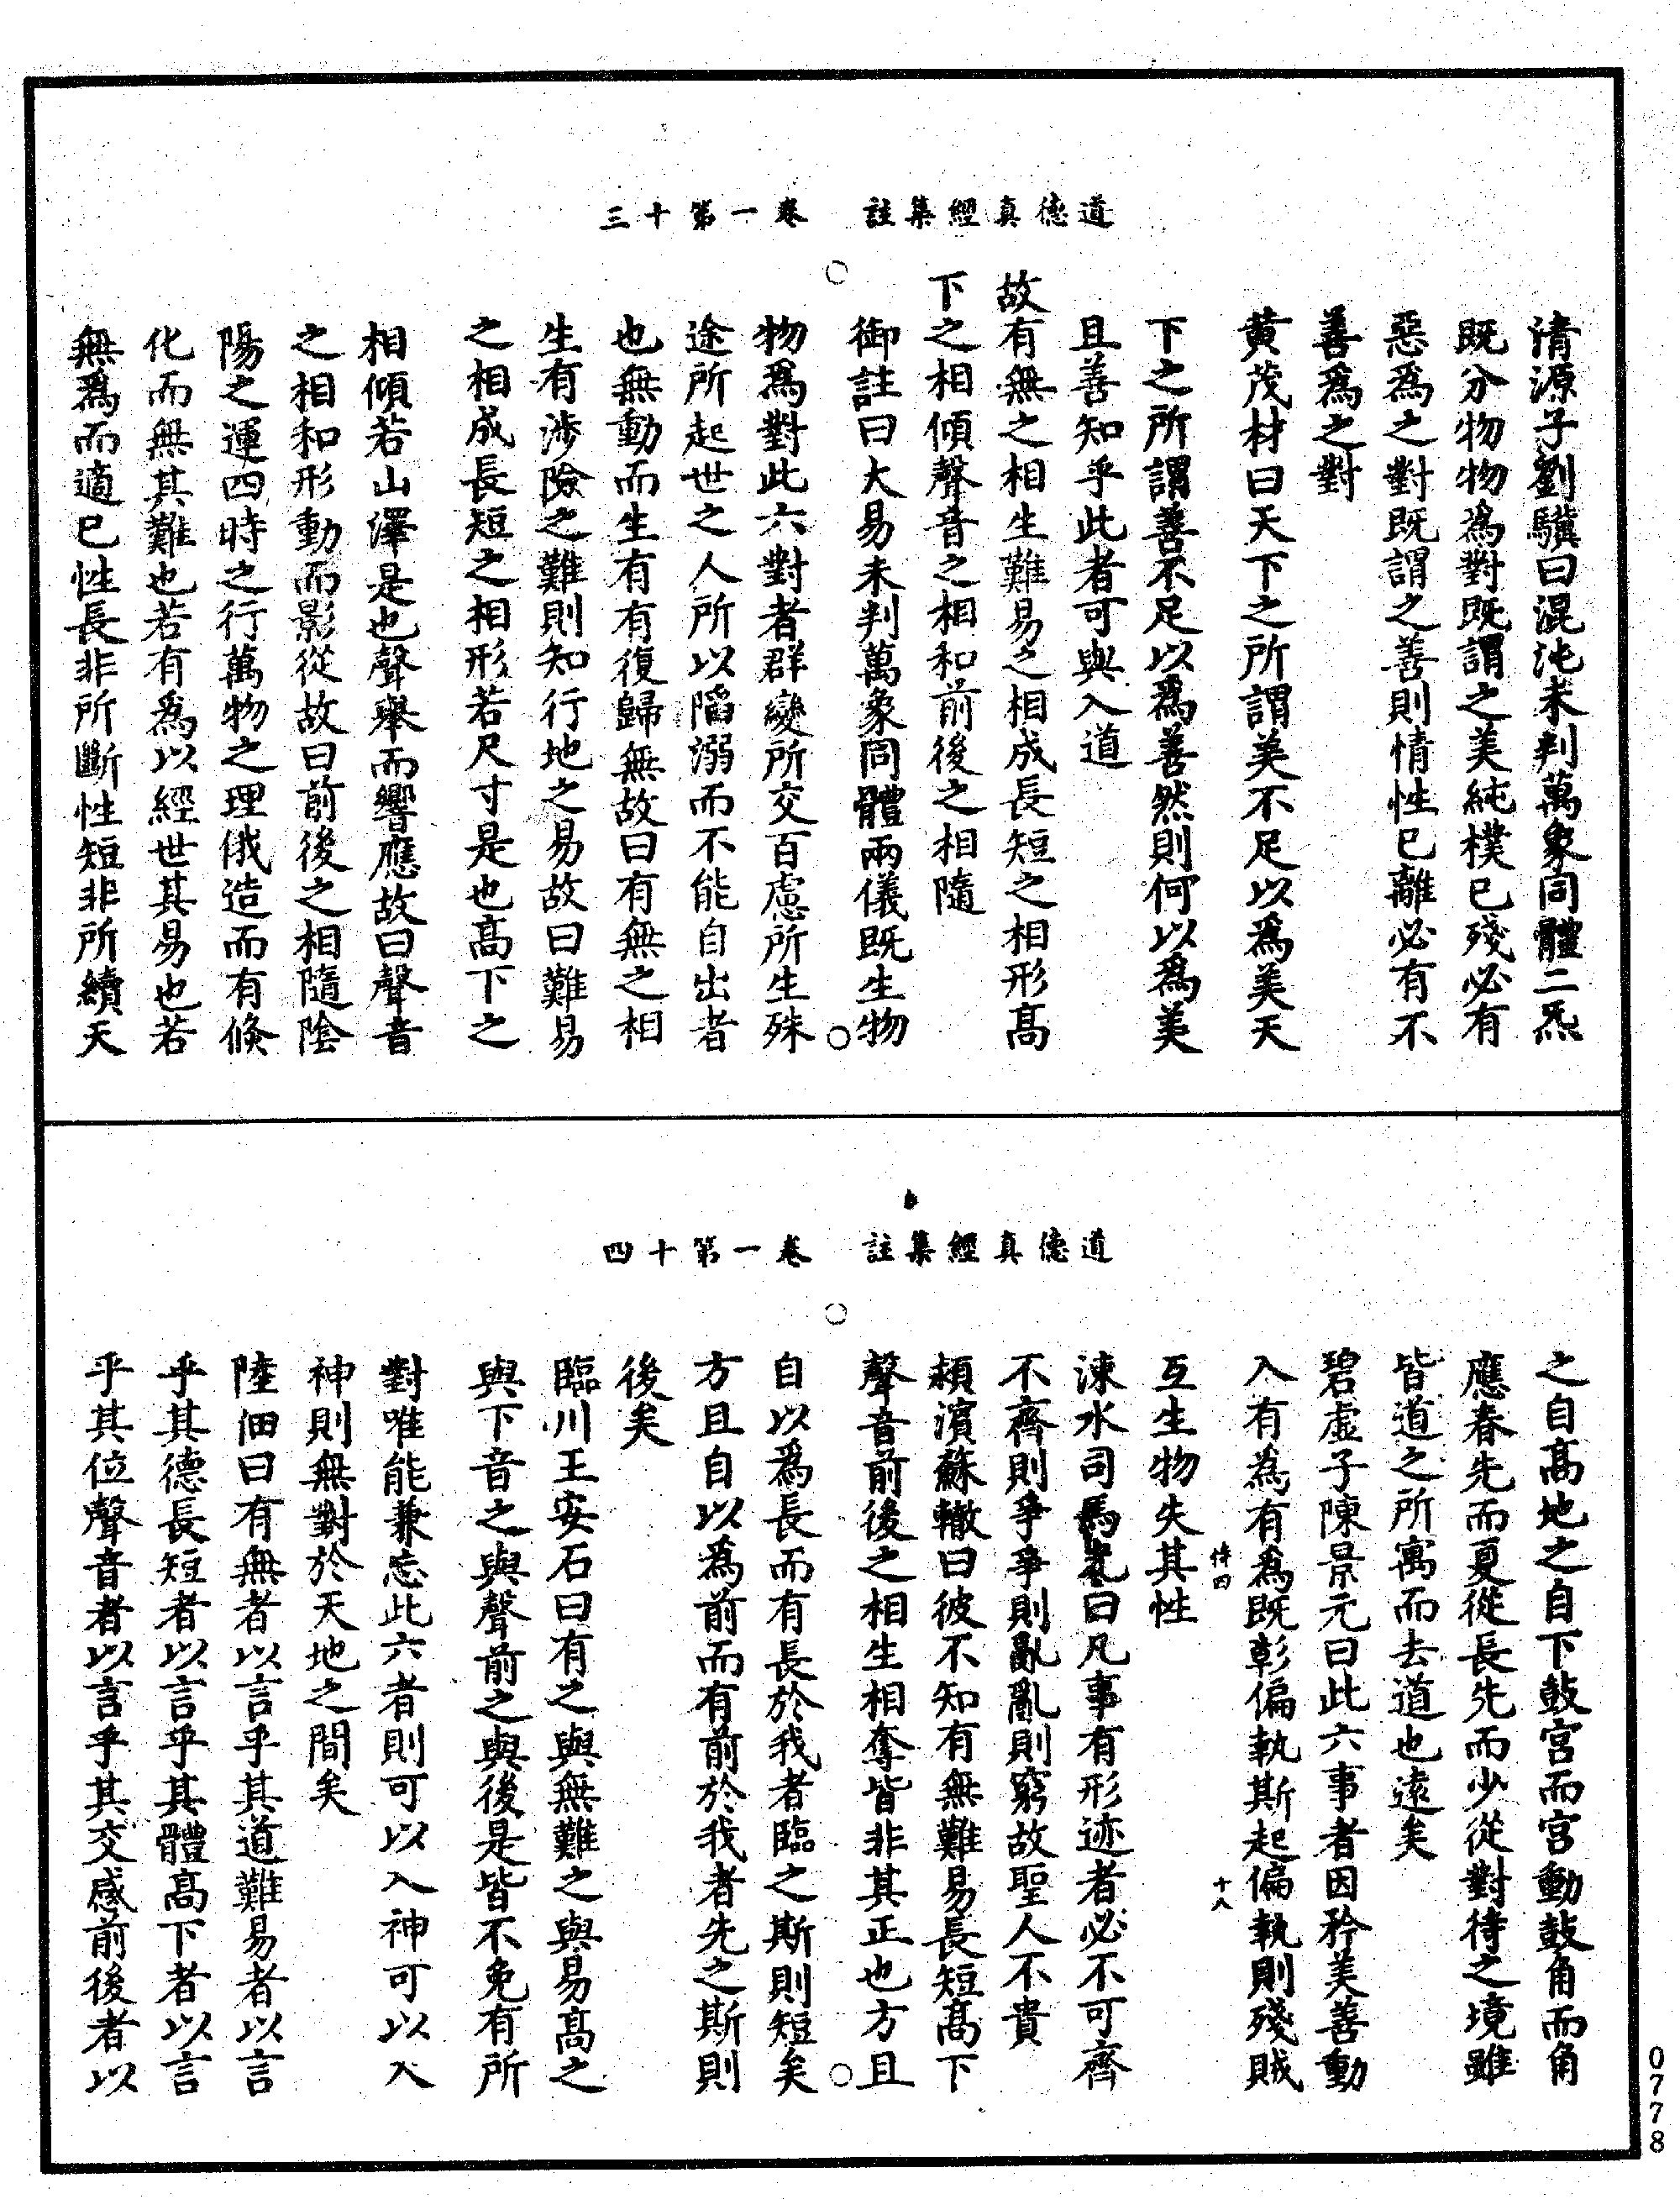 道德真經集註　卷一第十三
清源子劉驥曰混沌未判萬象同體二炁
既分物物為對既謂之美純樸已殘必有
惡為之對既謂之善則情性已離必有不
善為之對
黃茂材曰天下之所謂美不足以為美天
下之所謂善不足以為善然則何以為美
且善知乎此者可與入道
故有無之相生難易之相成長短之相形高
下之相傾聲音之相和前後之相隨
御註曰大易未判萬象同體兩儀既生物
物為對此六對者群變所交百慮所生殊
途所起世之人所以陷溺而不能自出者
也無動而生有有復歸無故曰有無之相
生有涉險之難則知行地之易故曰難易
之相成長短之相形若尺寸是也高下之
相傾若山澤是也聲舉而響應故曰聲音
之相和形動而影從故曰前後之相隨陰
陽之運四時之行萬物之理俄造而有倏
化而無其難也若有為以經世其易也若
無為而適已性長非所斷性短非所續天
道德真經集註　卷一第十四
之自高地之自下鼓宮而宮動鼓角而角
應春先而夏從長先而少從對待之境雖
皆道之所寓而去道也遠矣
碧虛子陳景元曰此六事者因矜美善動
入有為有為既彰偏執斯起偏執則殘賊
恃四　十八
互生物失其性
涑水司馬光曰凡事有形迹者必不可齊
不齊則爭爭則亂亂則窮故聖人不貴
頴濱蘇轍曰彼不知有無難易長短高下
聲音前後之相生相奪皆非其正也方且
自以為長而有長於我者臨之斯則短矣
方且自以為前而有前於我者先之斯則
後矣
臨川王安石曰有之與無難之與易高之
與下音之與聲前之與後是皆不免有所
對唯能兼忘此六者則可以入神可以入
神則無對於天地之間矣
陸佃曰有無者以言乎其道難易者以言
乎其德長短者以言乎其體高下者以言
乎其位聲音者以言乎其交感前後者以
0778